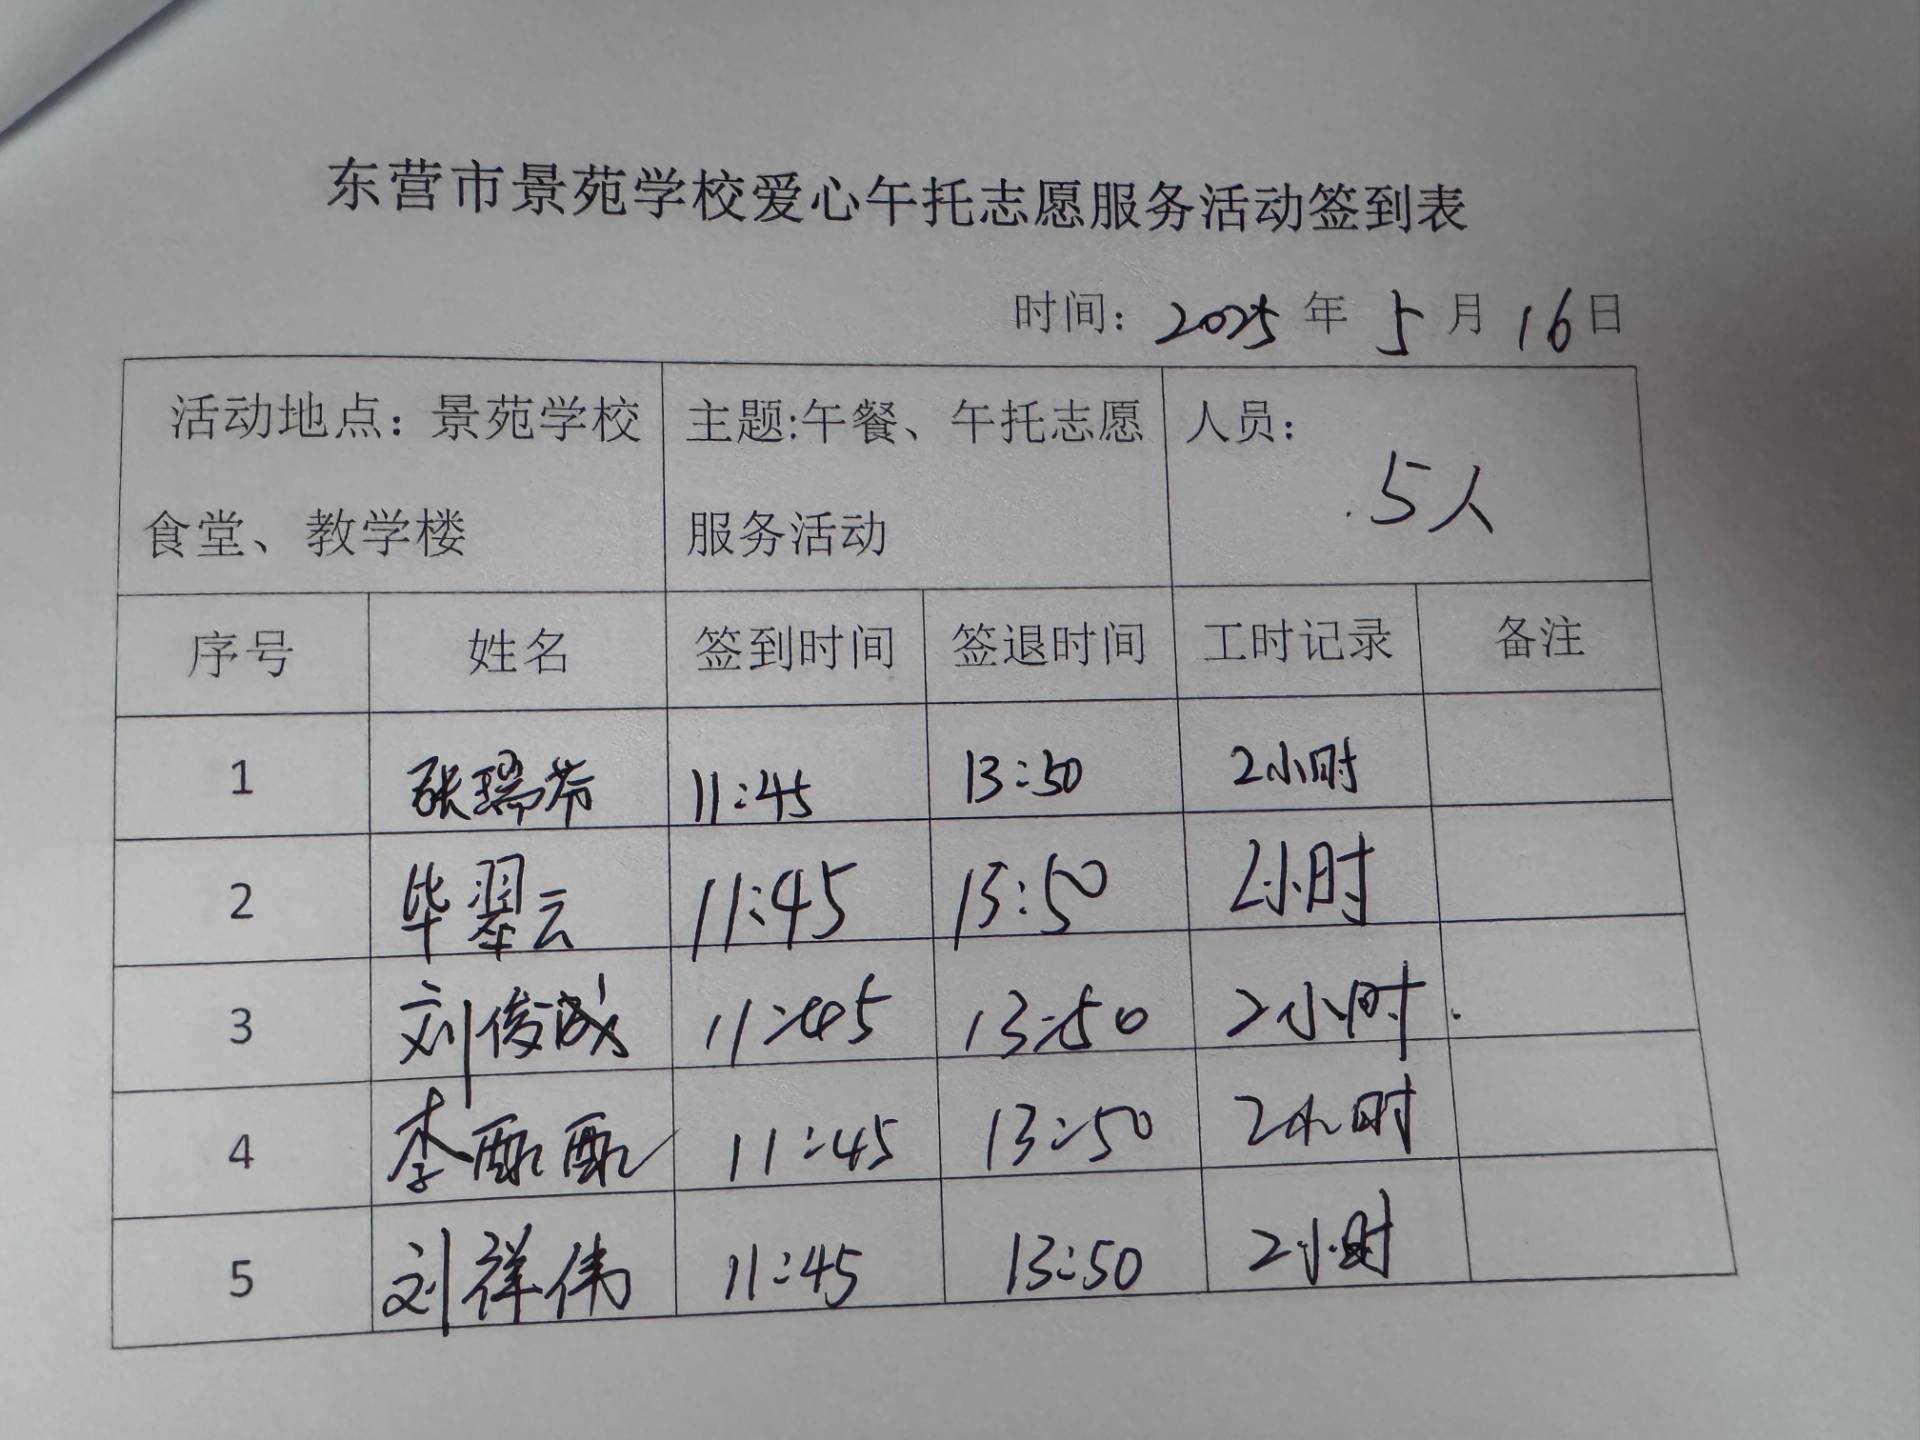 东营市景苑学校爱心午托志愿服务活动签到表
时间：2025 年 5 月 16 日
活动地点：景苑学校食堂、教学楼 主题:午餐、午托志愿服务活动 人员： 5人
序号 姓名 签到时间 签退时间 工时记录 备注
1 张瑞芬 11:45 13:50 2小时
2 毕翠云 11:45 13:50 2小时
3 刘俊成 11:45 13:50 2小时
4 李 11:45 13:50 2小时
5 刘祥伟 11:45 13:50 2小时